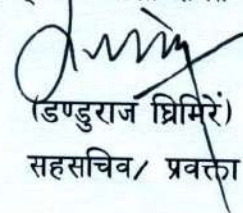 (डण्डुराज घिमिरें)
सहसचिव/ प्रवक्ता